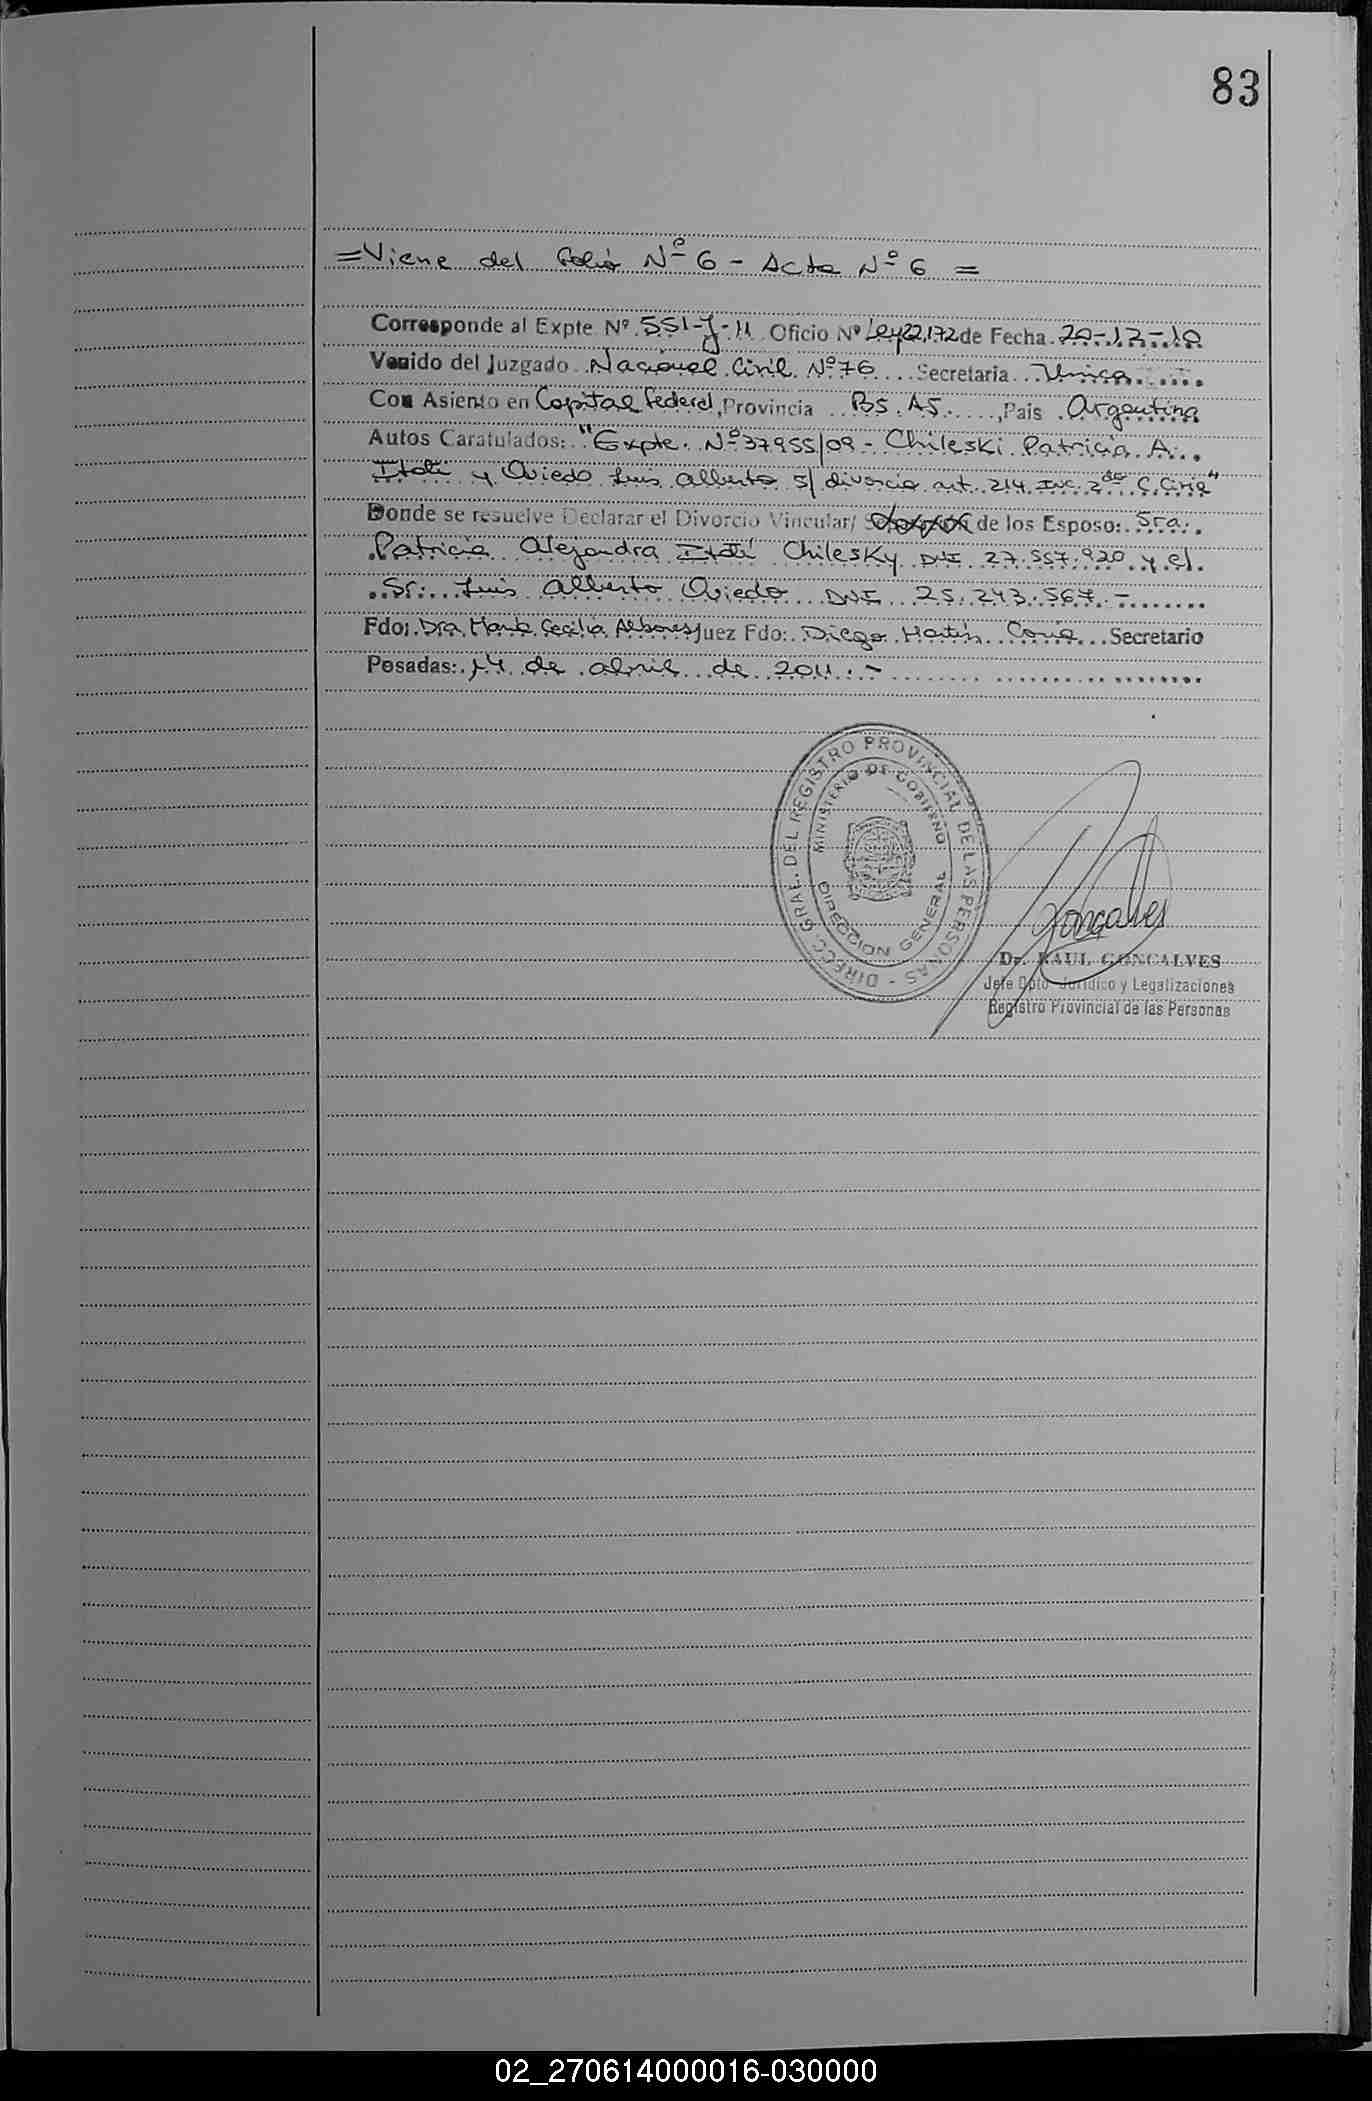 83
=Viene del folio Nº 6 - Acta Nº 6 =
Corresponde al Expte. Nº 551-J-11 Oficio Nº Ley 22,172 de Fecha 20-12-10
Venido del Juzgado Nacional Civil Nº 76 Secretaria Unica
Con Asiento en Capital Federal, Provincia BS. AS. , Pais Argentina
Autos Caratulados: "Expte. Nº 37955/09 - Chileski Patricia A.
Itatí y Oviedo Luis Alberto s/ divorcio art. 214 Inc. 2do C. Civil"
Donde se resuelve Declarar el Divorcio Vincular/ de los Esposo: Sra.
Patricia Alejandra Itatí Chilesky DNI 27.557.920 y el
Sr. Luis Alberto Oviedo DNI 25.243.567.-
Fdo: Dra. Cecilia Juez Fdo: Diego Martín Secretario
Posadas: 14 de abril de 2011.-
DIRECC. GRAL. DEL REGISTRO PROVINCIAL DE LAS PERSONAS -
MINISTERIO DE GOBIERNO
DIRECCION GENERAL
Goncalves
Dr. RAUL GONCALVES
Jefe Dpto. Jurídico y Legalizaciones
Registro Provincial de las Personas
02_270614000016-030000